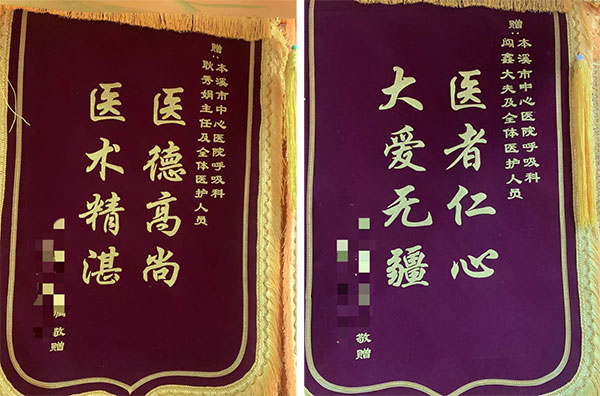 赠:
本溪市中心医院呼吸科
耿秀娟主任及全体医护人员
医德高尚
医术精湛
敬赠
赠:
本溪市中心医院呼吸科
鑫大夫及全体医护人员
医者仁心
大爱无疆
敬赠